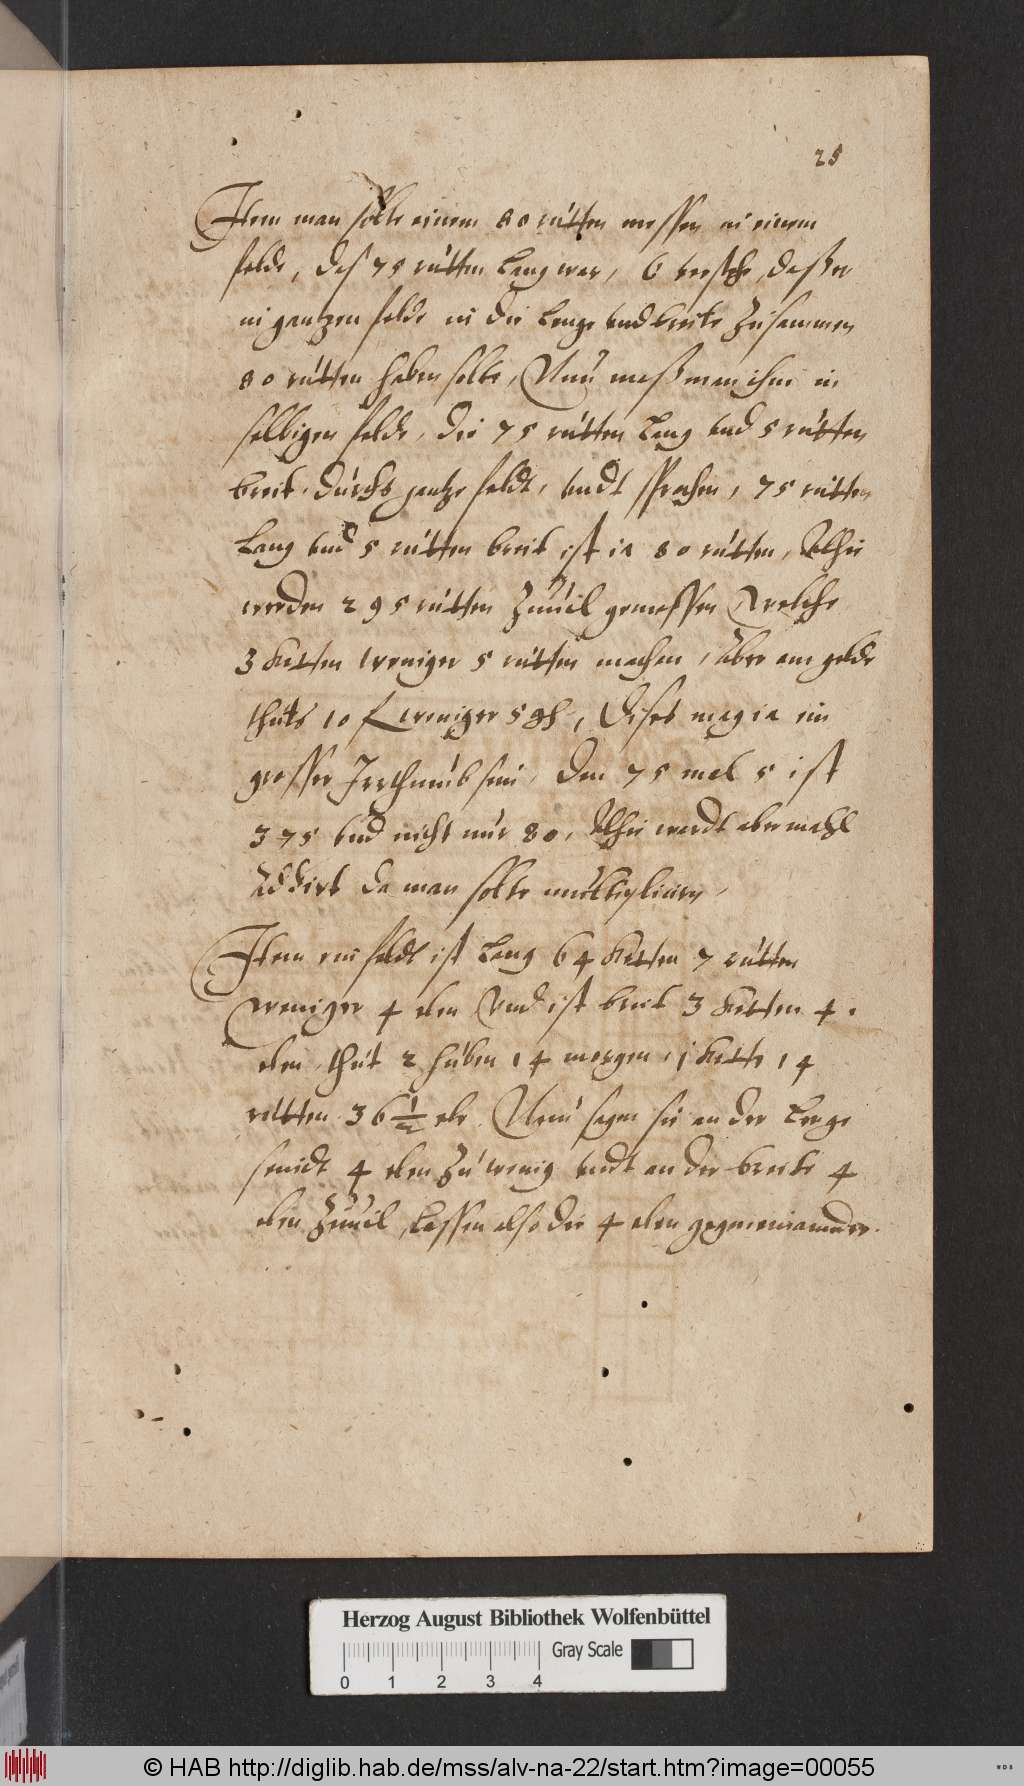 25
Item man solte einem 80 rutten messen in einem
felde, das 75 rutten lang war, verstehe, das er
in gantzen felde in die lenge vnd breite zusammen
80 rutten haben solte, Nun maß man ihm in
selbigen felde, die 75 rutten lang vnd 5 rutten
breit, durchs gantze feldt, vndt sprachen, 75 rutten
lang vnd 5 rutten breit ist ia 80 rutten, Alhie
werden 295 rutten zuuil gemessen welche
3 ketten weniger 5 rutten machen, Aber am gelde
thuts 10 weniger 5 Dises mag ia ein
grosser Irrthumb sein, den 75 mal 5 ist
375 vnd nicht nur 80, Alhie wardt abermahl
Addirt da man solte multipliciern,
Item ein feldt ist lang 64 ketten 7 rutten
weniger 4 elen Vnd ist breit 3 ketten 4
elen, thut 2 huben 14 morgen, 1 kette 14
rutten 36 1/2 ele. Nun sagen sie an der lenge
seindt 4 elen zu wenig vndt an der breite 4
elen zuuil, lassen also die 4 elen gegeneinander.
Herzog August Bibliothek Wolfenbüttel
Gray Scale
0 1 2 3 4
© HAB http://diglib.hab.de/mss/alv-na-22/start.htm?image=00055